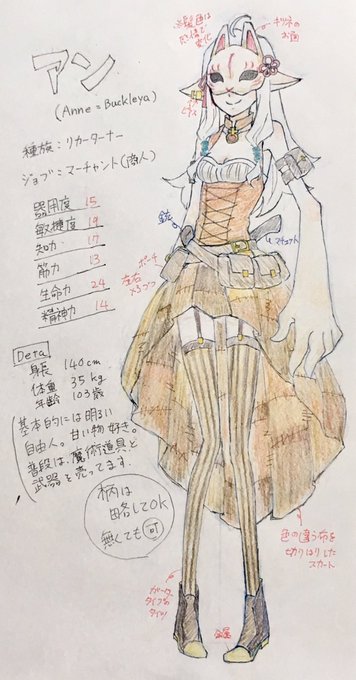 アン
(Anne=Buckleya)
種族:リカーターナー
ジョブ:マーチャント(商人)
器用度 15
敏捷度 19
知力 17
筋力 13
生命力 24
精神力 14
Deta
身長 140cm
体重 35kg
年齢 103歳
基本的には明るい
自由人。甘い物好き。
普段は、魔術道具と
武器を売ってます。
柄は
略してOK
無くても可
※髪色は
感情で
変化
キツネの
お面
ピアス
銃
マチェット
ポーチ
左右
×3づつ
色の違う布を
ツギハギした
スカート
ガーター
タイプの
タイツ
金属